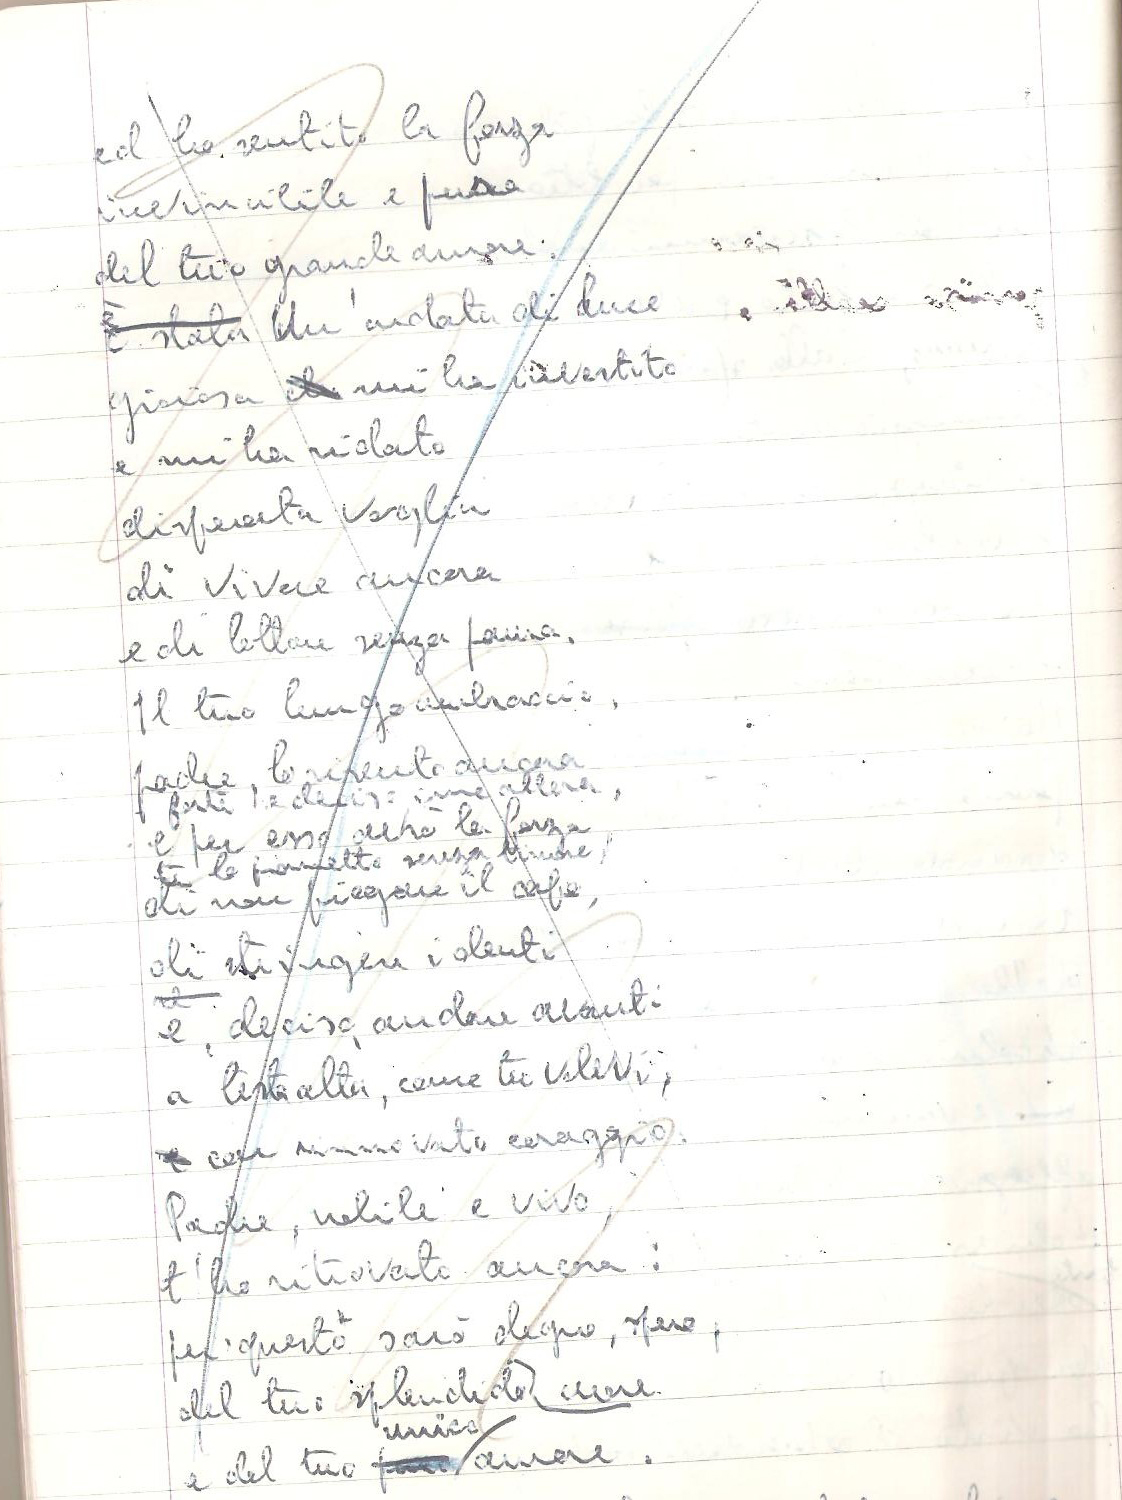 ed ho sentito la forza
invincibile e pura
del tuo grande amore.
È stata Un'ondata di luce
gioiosa che mi ha investito
e mi ha ridato
disperata voglia
di vivere ancora
e di lottare senza paura.
Il tuo lungo abbraccio,
padre, lo risento ancora
forte e deciso come allora,
e per esso avrò la forza
te lo prometto senza timore,
di non piegare il capo,
di stringere i denti
e, deciso, andare avanti
a testa alta, come tu volevi,
e con rinnovato coraggio.
Padre, nobile e vivo,
t'ho ritrovato ancora:
per questo sarò degno, spero,
del tuo splendido cuore
unico
e del tuo amore.